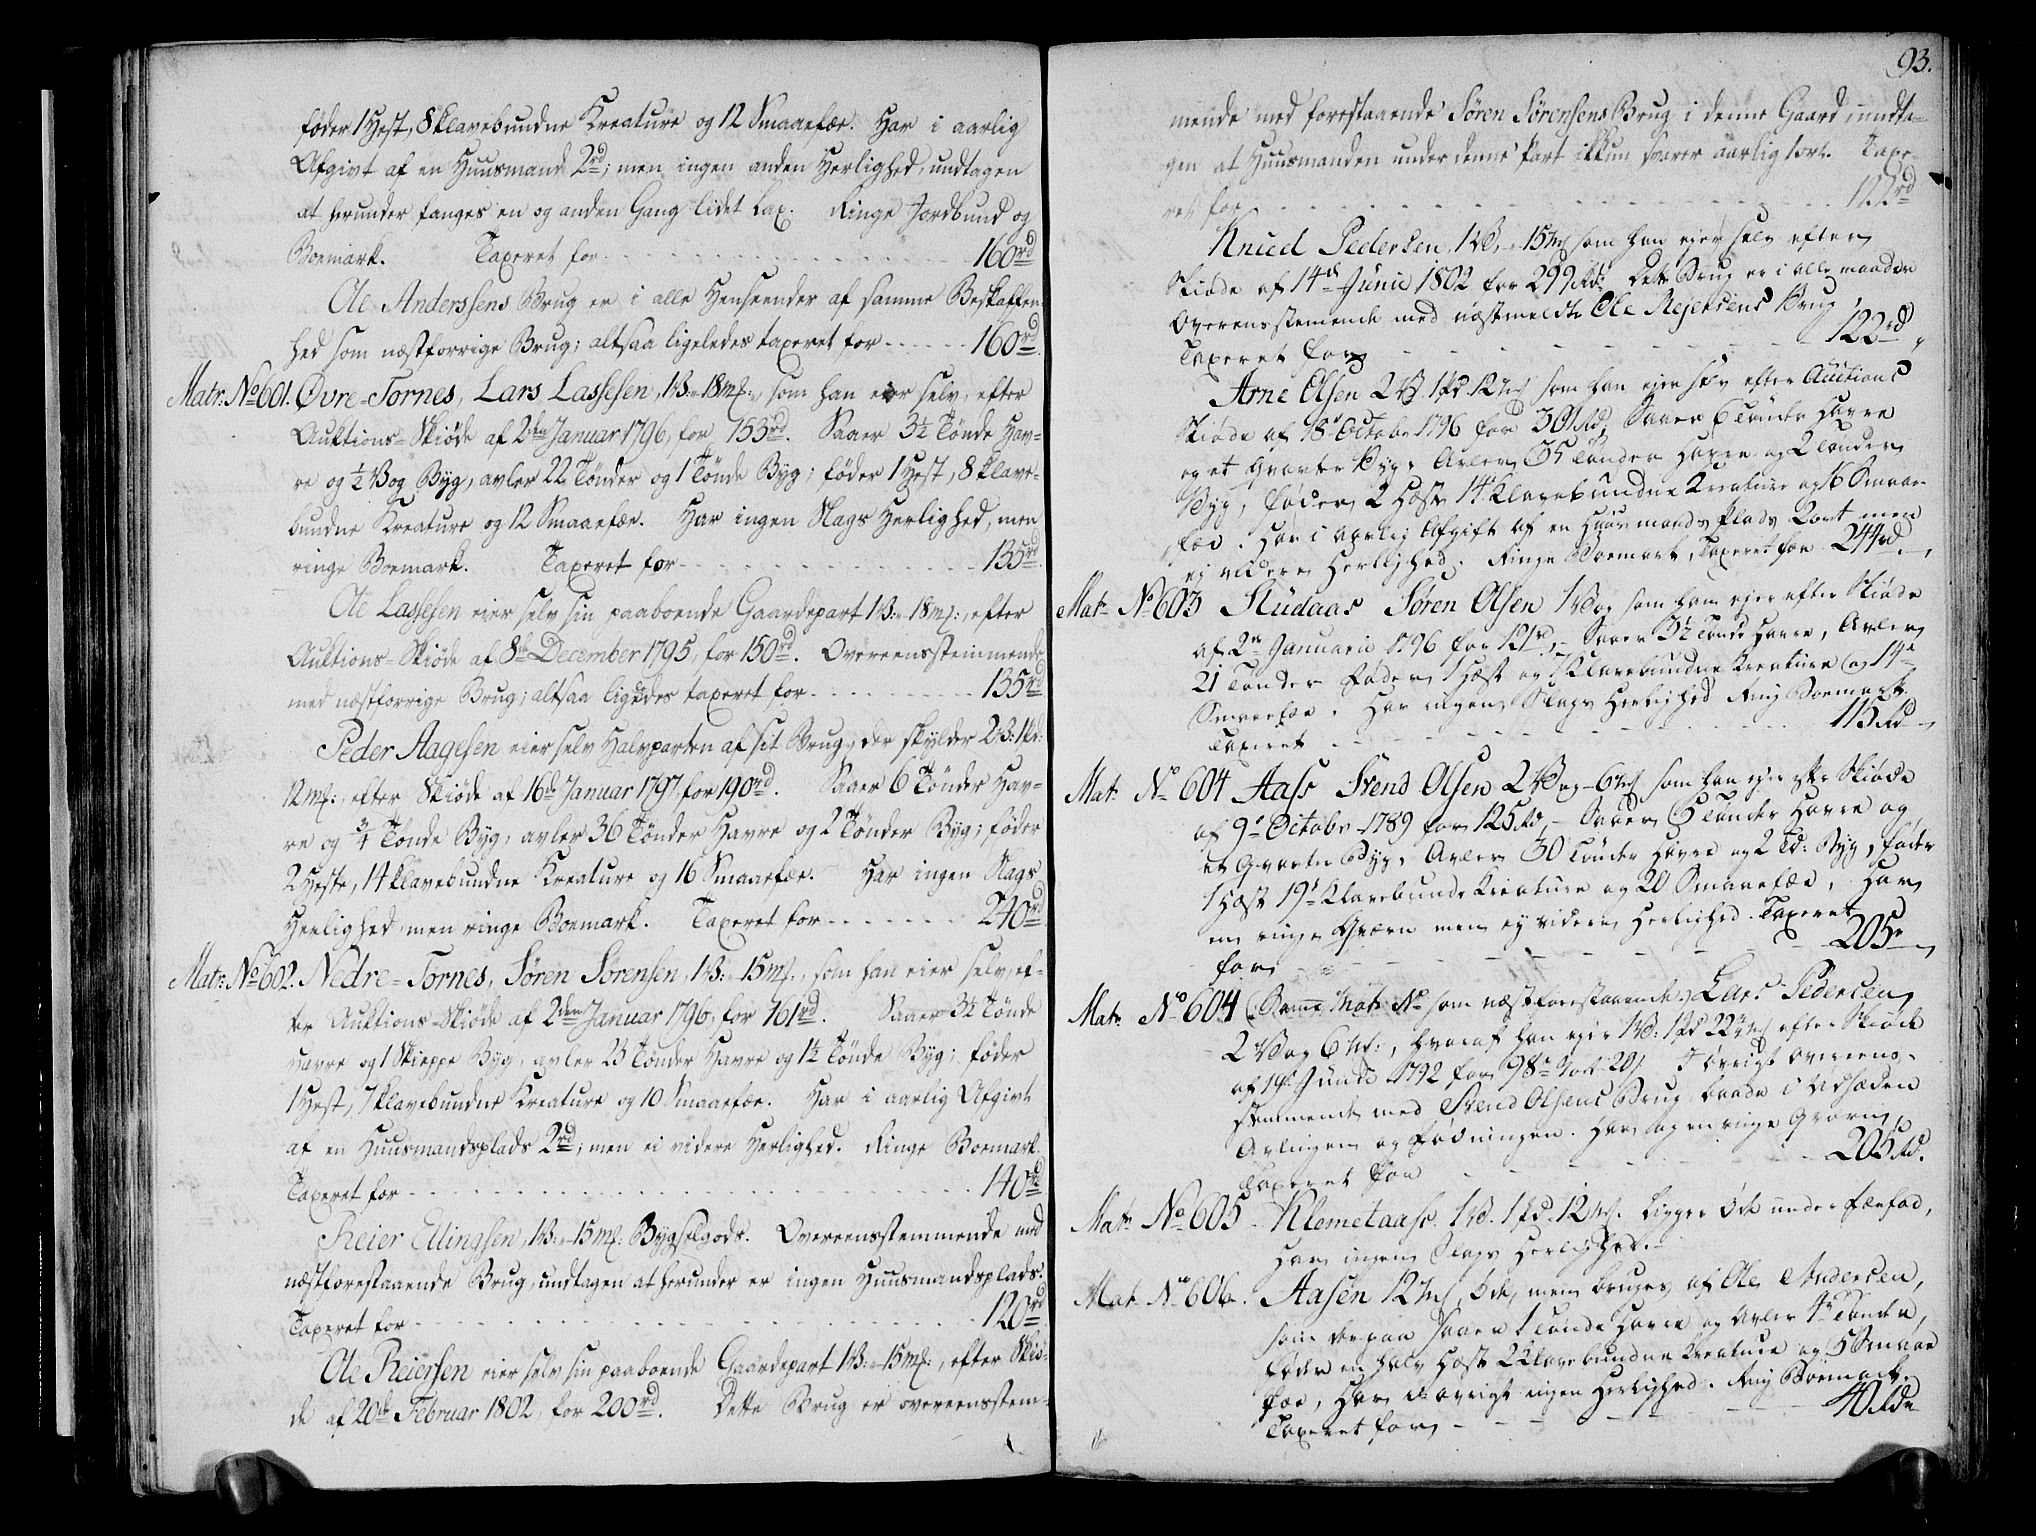 føder 1 Hest, 8 klavebundne Kreature og 12 Smaaefæe. Har i aarlig
Afgivt af en Huusmand 2rd; men ingen anden Herlighed, undtagen
at herunder fanges en og anden Gang lidet Lax. Ringe Jordbund og
Boemark. Taxeret for - - - 160rd
Ole Anderssens Brug er i alle Henseender af samme Beskaffen-
hed som næstforrige Brug; altsaa ligeledes taxeret for - - - 160rd.
Matr. No 601. Øvre-Tornes, Lars Lassesen, 1B: - 18mk:, som han eier selv, efter
Auktions-Skiøde af 2den Januar 1796, for 153rd. Saaer 3½ Tønde Hav-
re og ½ Vog Byg, avler 22 Tønder og 1 Tønde Byg; føder 1 Hest, 8 klave-
bundne Kreature og 12 Smaaefæe. Har ingen Slags Herlighed, men
ringe Boemark. Taxeret for - - - 135rd.
Ole Lassesen eier selv sin paaboende Gaardepart 1B: - 18mk:, efter
Auktions-Skiøde af 8de December 1795, for 150rd. Overeensstemmende
med næstforrige Brug; altsaa ligeledes taxeret for - - - 135rd
Peder Aagesen eier selv Halvparten af sit Brug, der skylder 2B: 1pd:
12mk:, efter Skiøde af 16de Januar 1797, for 190rd. Saaer 6 Tønder Hav-
re og ¾ Tønde Byg, avler 36 Tønder Havre og 2 Tønder Byg; føder
2 Heste, 14 klavebundne Kreature og 16 Smaaefæe. Har ingen Slags
Herlighed, men ringe Boemark. Taxeret for - - - 240rd
Matr. No 602. Nedre-Tornes, Søren Sørensen, 1B: - 15mk:, som han eier selv, ef-
ter Auktions-Skiøde af 2den Januar 1796, for 161rd. Saaer 3½ Tønde
Havre og 1 Skieppe Byg, avler 23 Tønder Havre og 1½ Tønde Byg; føder
1 Hest, 7 klavebundne Kreature og 10 Smaaefæe. Har i aarlig Afgivt
af en Huusmandsplads 2rd; men ei videre Herlighed. Ringe Boemark.
Taxeret for - - - 140rd
Reier Ellingsen, 1B: - 15mk: Bygselgods. Overeensstemmende med
næstforestaaende Brug, undtagen at herunder er ingen Huusmandsplads.
Taxeret for - - - 120rd
Ole Reiersen eier selv sin paaboende Gaardepart 1B: - 15mk:, efter Skiø-
de af 20de Februar 1802, for 200rd. Dette Brug er overeensstem-
93.
mende med forestaaende Søren Sørensens Brug i denne Gaard, undta-
gen at Huusmanden under denne Part ikkun svarer aarlig 1ort. Taxe-
ret for - - - 122rd
Knud Pedersen 1B, - 15mk som han ejer selv efter
Skiøde af 14de Junii 1802 for 299Rd. Dette Brug er i alle maader
Overensstemende med næstmeldte Ole Rejersens Brug,
Taxeret for - - - 122rd
Arne Olsen 2B. 1Pd. 12mk som han ejer selv efter Auctions
Skiøde af 18de Octobr 1796 for 301Rd, Saaer 6 Tønder Havre
og et Qvarter Byg, Avler 35 Tønder Havre og 2 Tønder
Byg, føder 2 Hæste 14 Klavebundne Kreature og 16 Smaae-
fæe. Har i aarlig Afgift af en Huusmands Plads 2ort men
ej videre Herlighed. Ringe Boemark, Taxeret for 244rd.
Mat. No 603 Studaas Søren Olsen 1 Vog som han ejer efter Skiøde
af 2n Januarii 1796 for 121rd, - Saaer 3½ Tønde Havre, Avler
21 Tønder Føder 1 Hæst og 7 Klavebundne Kreature og 14
Smaaefæe. Har ingen Slags Herlighed Ring Boemark.
Taxeret - - - 115Rd
Mat. No 604 Aass Svend Olsen 2 Vog - 6mk som han ejer efter Skiøde
af 9de Octobr 1789 for 125Rd, - Saaer 6 Tønder Havre og
et Qvarter Byg, Avler 30 Tønder Havre og 2 Td: Byg, føder
1 Hæst 19 Klavebundne Kreature og 20 Smaaefæe, Har
en ringe Qværn men ej videre Herlighed. Taxeret
for - - - 205r
Mat. No 604 (Samme Matr No som næstforestaaende) Lars Pedersen
2 Vog 6mk:, hvoraf han ejer 1B: 1Pd 22½mk efter Skiøde
af 19de Junii 1792 for 98rd 1ort 20s. I øvrigt Overeens-
stemmende med Svend Olsens Brug baade i Udsæden
Avlingen og Fødningen. Har og en ringe Qværn,
Taxeret for - - - 205Rd.
Mat. No 605 - Klemetaass. 1B. 1Pd. 12mk. Ligger øde under Fæefod,
Har ingen Slags Herlighed. -
Mat. No 606. Aasen 12mk, øde, men bruges af Ole Andersen,
som derpaa Saaer 1 Tønde Havre og Avler 4re Tønder,
Føder en halv Hæst 2 Klavebundne Kreature og 5 Smaae
fæe, Har i øvrigt ingen Herlighed. Ring Boemark.
Taxeret for - - - 40Rdr